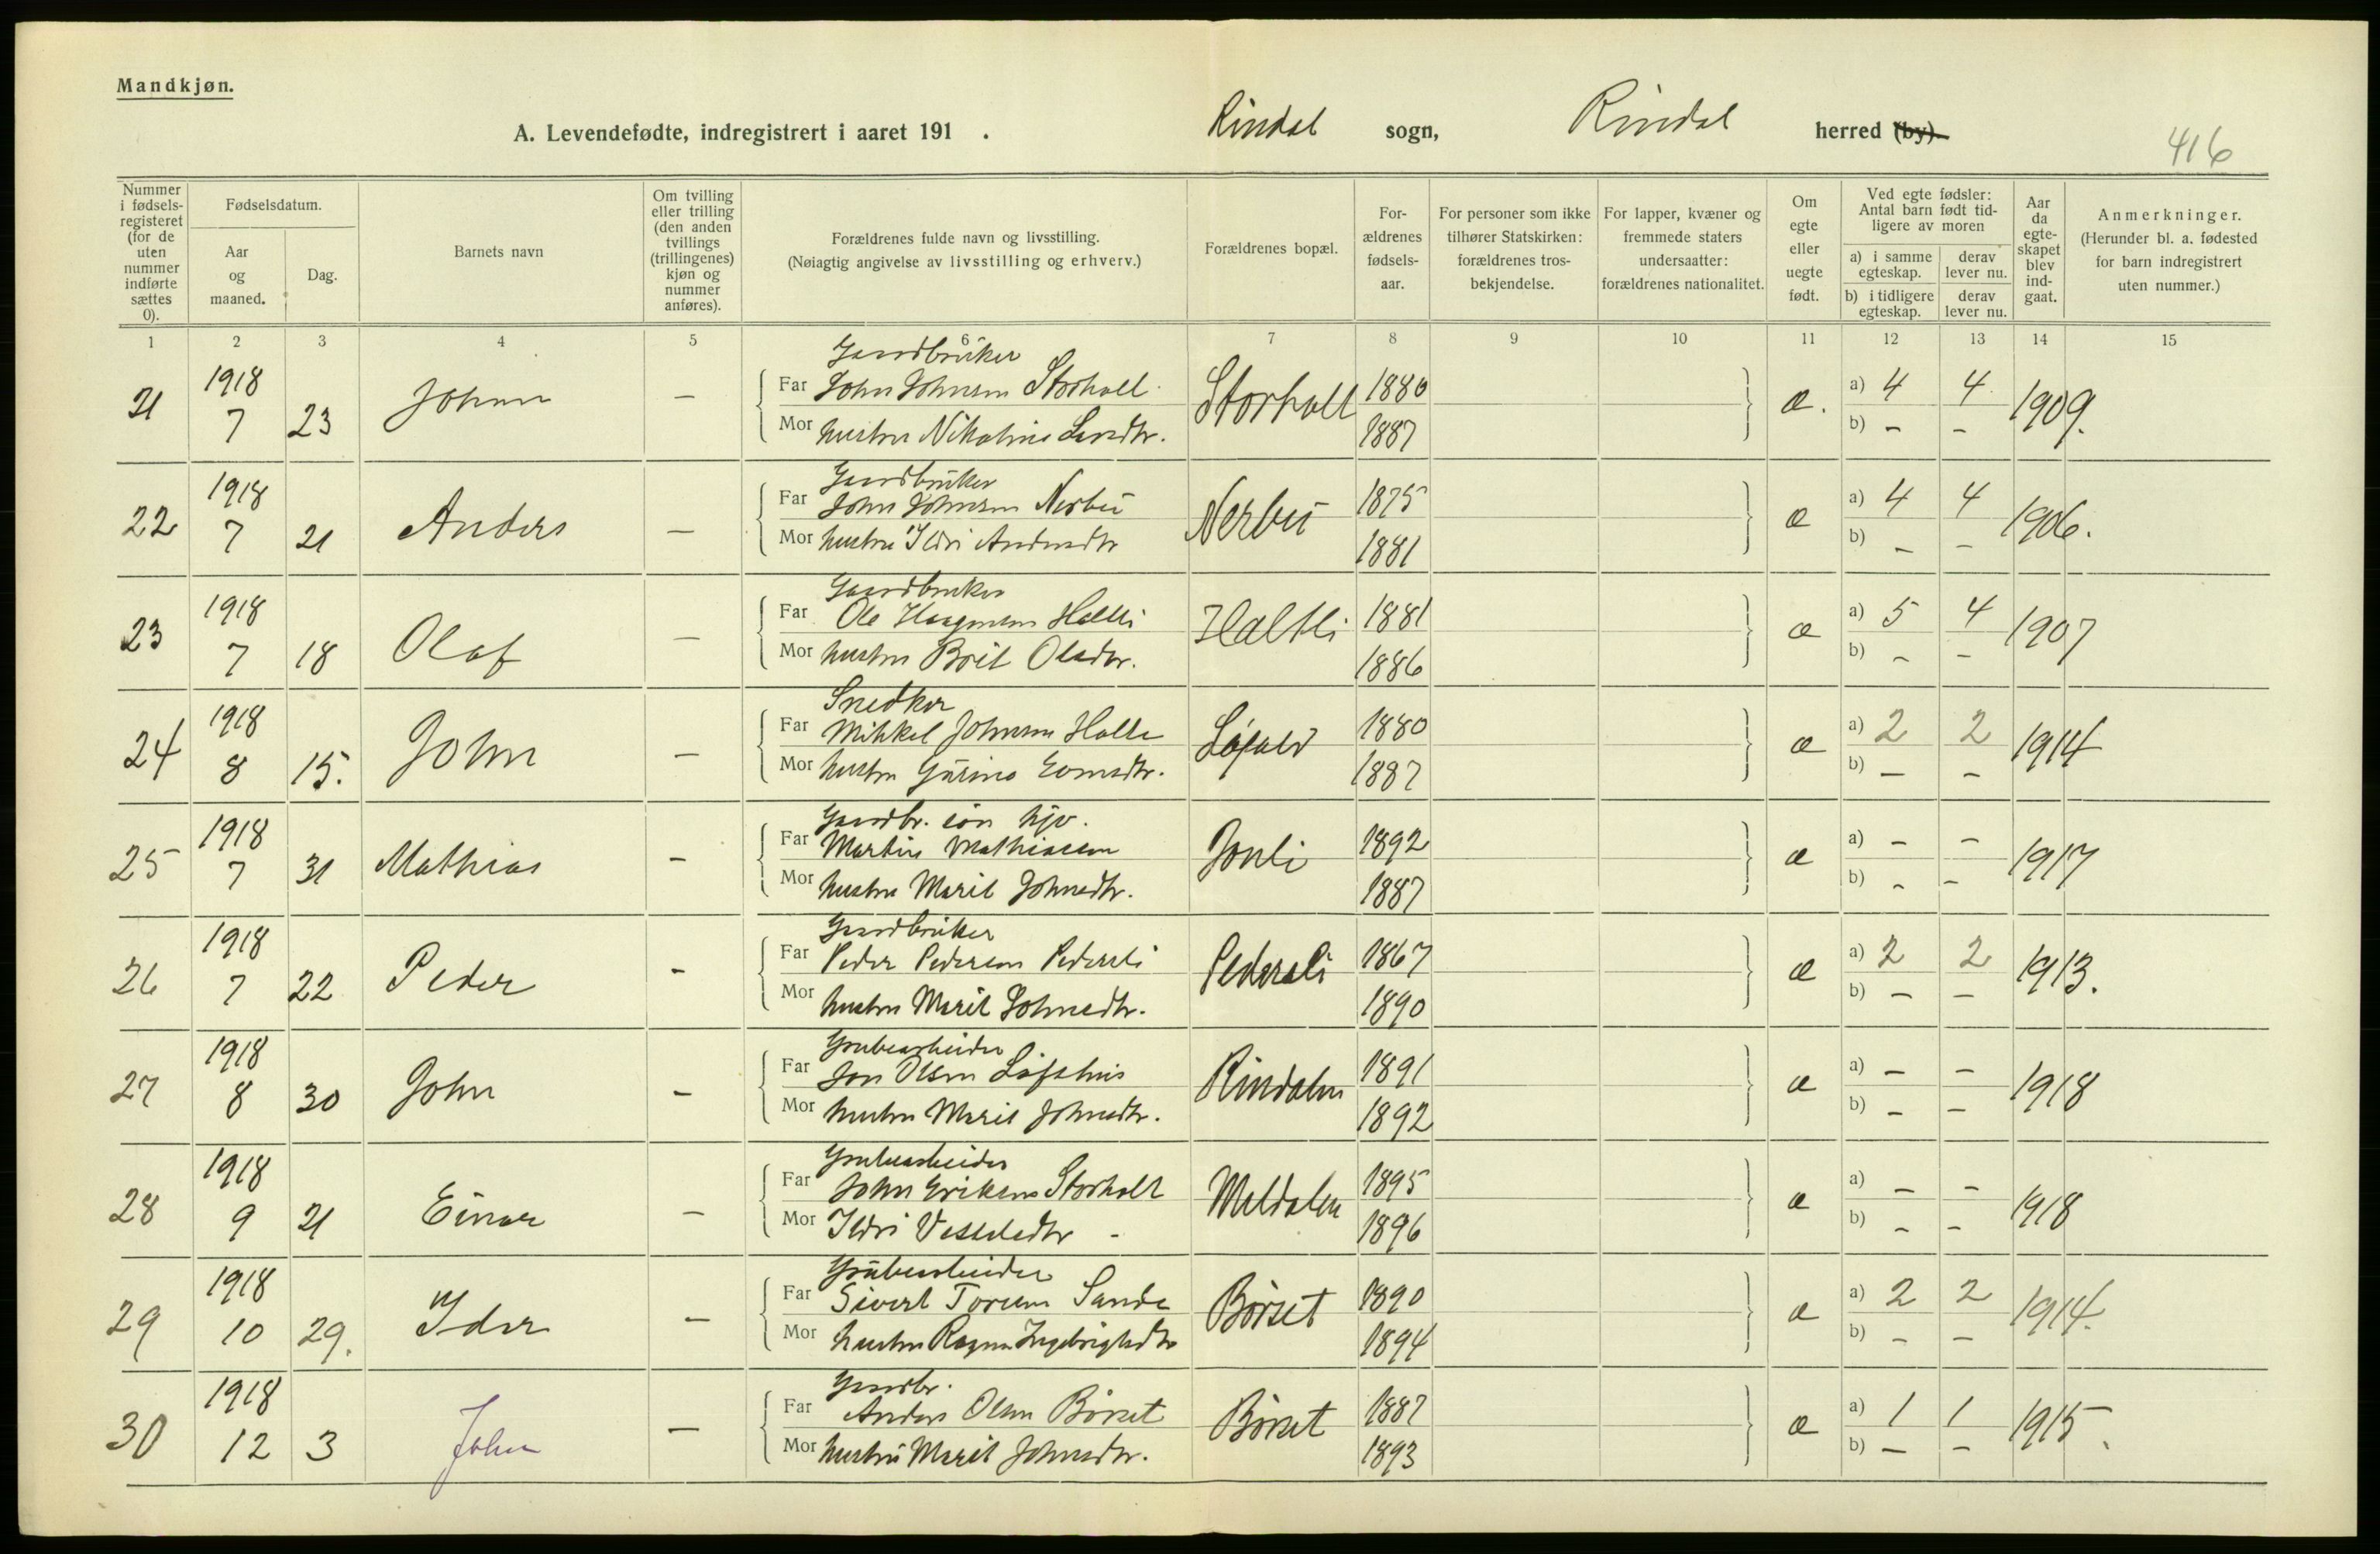 Mandkjøn.
A. Levendefødte, indregistrert i aaret 191 . Rindal sogn, Rindal herred (by).
416
Nummer i fødsels-registeret (for de uten nummer indførte sættes 0).
Fødselsdatum.
Aar og maaned.
Dag.
Barnets navn
Om tvilling eller trilling (den anden tvillings (trillingenes) kjøn og nummer anføres).
Forældrenes fulde navn og livsstilling.
(Nøiagtig angivelse av livsstilling og erhverv.)
Forældrenes bopæl.
For-ældrenes fødsels-aar.
For personer som ikke tilhører Statskirken: forældrenes tros-bekjendelse.
For lapper, kvæner og fremmede staters undersaatter: forældrenes nationalitet.
Om egte eller uegte født.
Ved egte fødsler: Antal barn født tid-ligere av moren
a) i samme egteskap.
derav lever nu.
b) i tidligere egteskap.
derav lever nu.
Aar da egte-skapet blev ind-gaat.
Anmerkninger.
(Herunder bl. a. fødested for barn indregistrert uten nummer.)
1 2 3 4 5 6 7 8 9 10 11 12 13 14 15
Gaardbruker
21 1918 7 23 Johan – Far John Johnsen Storholt Storholt 1880 æ. a) 4 4 1909.
Mor hustru Nikoline Larsdtr. 1887 b) – –
Gaardbruker
22 1918 7 21 Anders – Far John Johnsen Nerbu Nerbu 1875 æ a) 4 4 1906.
Mor hustru Ildri Andersdtr 1881 b) – –
Gaardbruker
23 1918 7 18 Olaf – Far Ole Haagensen Haltli Haltli 1881 æ a) 5 4 1907
Mor hustru Brit Olsdtr. 1886 b) – –
Snedker
24 1918 8 15. John – Far Mikkel Johnsen Løfald 1880 æ a) 2 2 1914
Mor hustru Gurine 1887 b) – –
Gaardbr. søn hjv.
25 1918 7 31 Mathias – Far Martin Mathiassen Jonli 1892 æ a) – – 1917
Mor hustru Marit Johnsdtr. 1887 b) – –
Gaardbruker
26 1918 7 22 Peder – Far Peder Pedersen Pedersli Pedersli 1867 æ a) 2 2 1913.
Mor hustru Marit Johnsdtr. 1890 b) – –
Grubearbeider
27 1918 8 30 John – Far Jon Olsen Rindalen 1891 æ a) – – 1918
Mor hustru Marit Johnsdtr. 1892 b) – –
Grubearbeider
28 1918 9 21 Einar – Far John Eriksen Storholt Meldalen 1895 æ a) – – 1918
Mor Ildri Vesseledtr – 1896 b) – –
Grubearbeider
29 1918 10 29. Ider – Far Sivert Toresen Sande Børset 1890 æ a) 2 2 1914.
Mor hustru Ragna Ingebrigtsdtr 1894 b) – –
Gaardbr.
30 1918 12 3 John – Far Anders Olsen Børset Børset 1887 æ a) 1 1 1915.
Mor hustru Marit Johnsdtr. 1893 b) – –